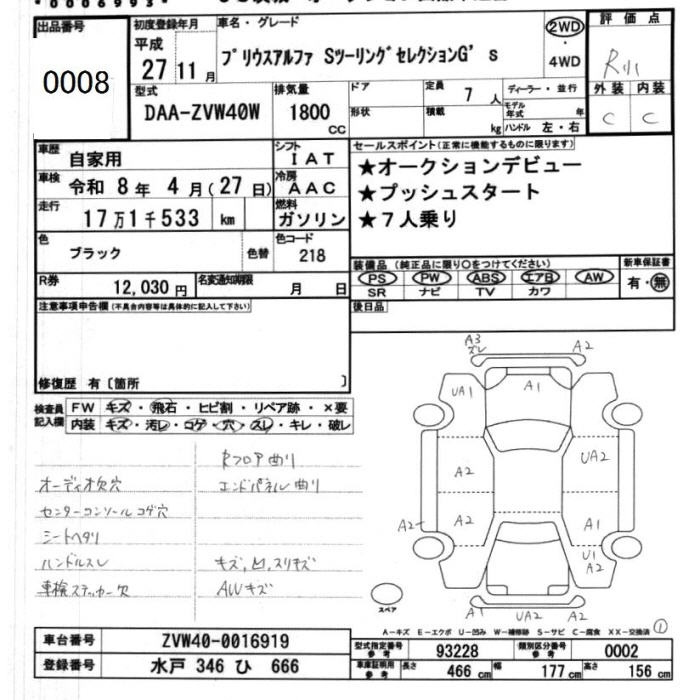 *0006993*
出品番号
0008
初度登録年月
平成
27 11 月
車名・グレード
プリウスアルファ SツーリングセレクションG's
2WD
・
4WD
評価点
R
外装 内装
C C
型式
DAA-ZVW40W
排気量
1800
CC
ドア
形状
定員
7 人
積載
kg
ディーラー・並行
モデル年式 年
ハンドル 左・右
車歴
自家用
シフト
IAT
車検
令和 8年 4月(27日)
冷房
AAC
走行
17万1千533 km
燃料
ガソリン
色
ブラック
色替
色コード
218
R券
12,030円
名変通知期限
月 日
セールスポイント(正常に機能するものに限ります)
★オークションデビュー
★プッシュスタート
★7人乗り
装備品(純正品に限り○をつけてください)
PS PW ABS エアB AW
SR ナビ TV カワ
新車保証書
有・無
注意事項申告欄(不具合内容等は具体的に記入して下さい)
後日品
修復歴 有〔箇所 〕
検査員記入欄
FW キズ・飛石・ヒビ割・リペア跡・×要
内装 キズ・汚レ・コゲ・穴・スレ・キレ・破レ
Rフロア曲り
オーディオ欠穴 エンドパネル曲り
センターコンソールコゲ穴
シートヘタリ
ハンドルスレ キズ,凹,スリキズ
車検ステッカー欠 AWキズ
A3
ズレ
A2
UA1
A1
A2
UA2
A2
A2
A1
U1
A2
A1
UA2
A2
スペア
A-キズ E-エクボ U-凹み W-補修跡 S-サビ C-腐食 XX-交換済
①
車台番号 ZVW40-0016919
登録番号 水戸 346 ひ 666
型式指定番号 参考 93228
類別区分番号 参考 0002
車庫証明用 参考 長さ 466 cm 幅 177 cm 高さ 156 cm